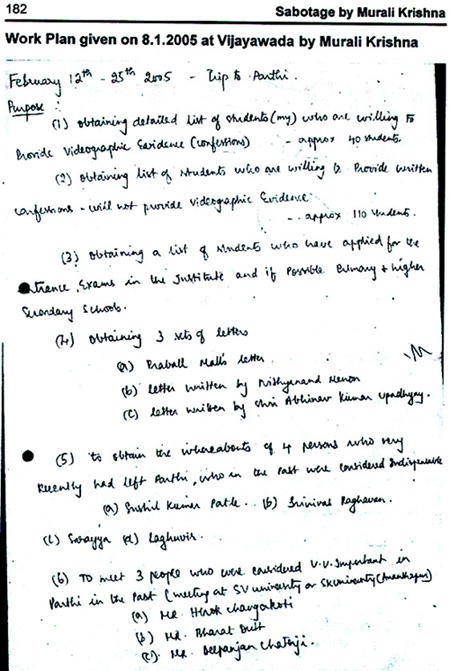 182
Sabotage by Murali Krishna
Work Plan given on 8.1.2005 at Vijayawada by Murali Krishna
February 12th - 25th 2005 - Trip to Parthi.
Purpose :
(1) Obtaining detailed list of students (my) who are willing to
Provide Videographic Evidence (confessions) - approx 40 students.
(2) Obtaining list of students who are willing to Provide written
confessions - will not provide videographic Evidence
- approx 110 students.
(3) Obtaining a list of students who have applied for the
Entrance Exams in the Institute and if Possible Primary & higher
Secondary Schools.
(4) Obtaining 3 sets of letters
(a) Malli's letter.
(b) letter written by Nithyanand Menon
(c) letter written by Shri Abhinav Kumar Upadhyay.
(5) To obtain the whereabouts of 4 persons who very
recently had left Parthi, who in the Past were considered Indispensable
(a) Sushil Kumar (b) Srinivas Raghavan.
(c) Sorayya (d) Raghuvir.
(6) To meet 3 people who were considered V.V. Important in
Parthi in the Past (meeting at SV university or SK university (Ananthapur)
(a) Mr.
(b) Mr. Bharat Dutt
(c) Mr. Deepanjan Chatterji.